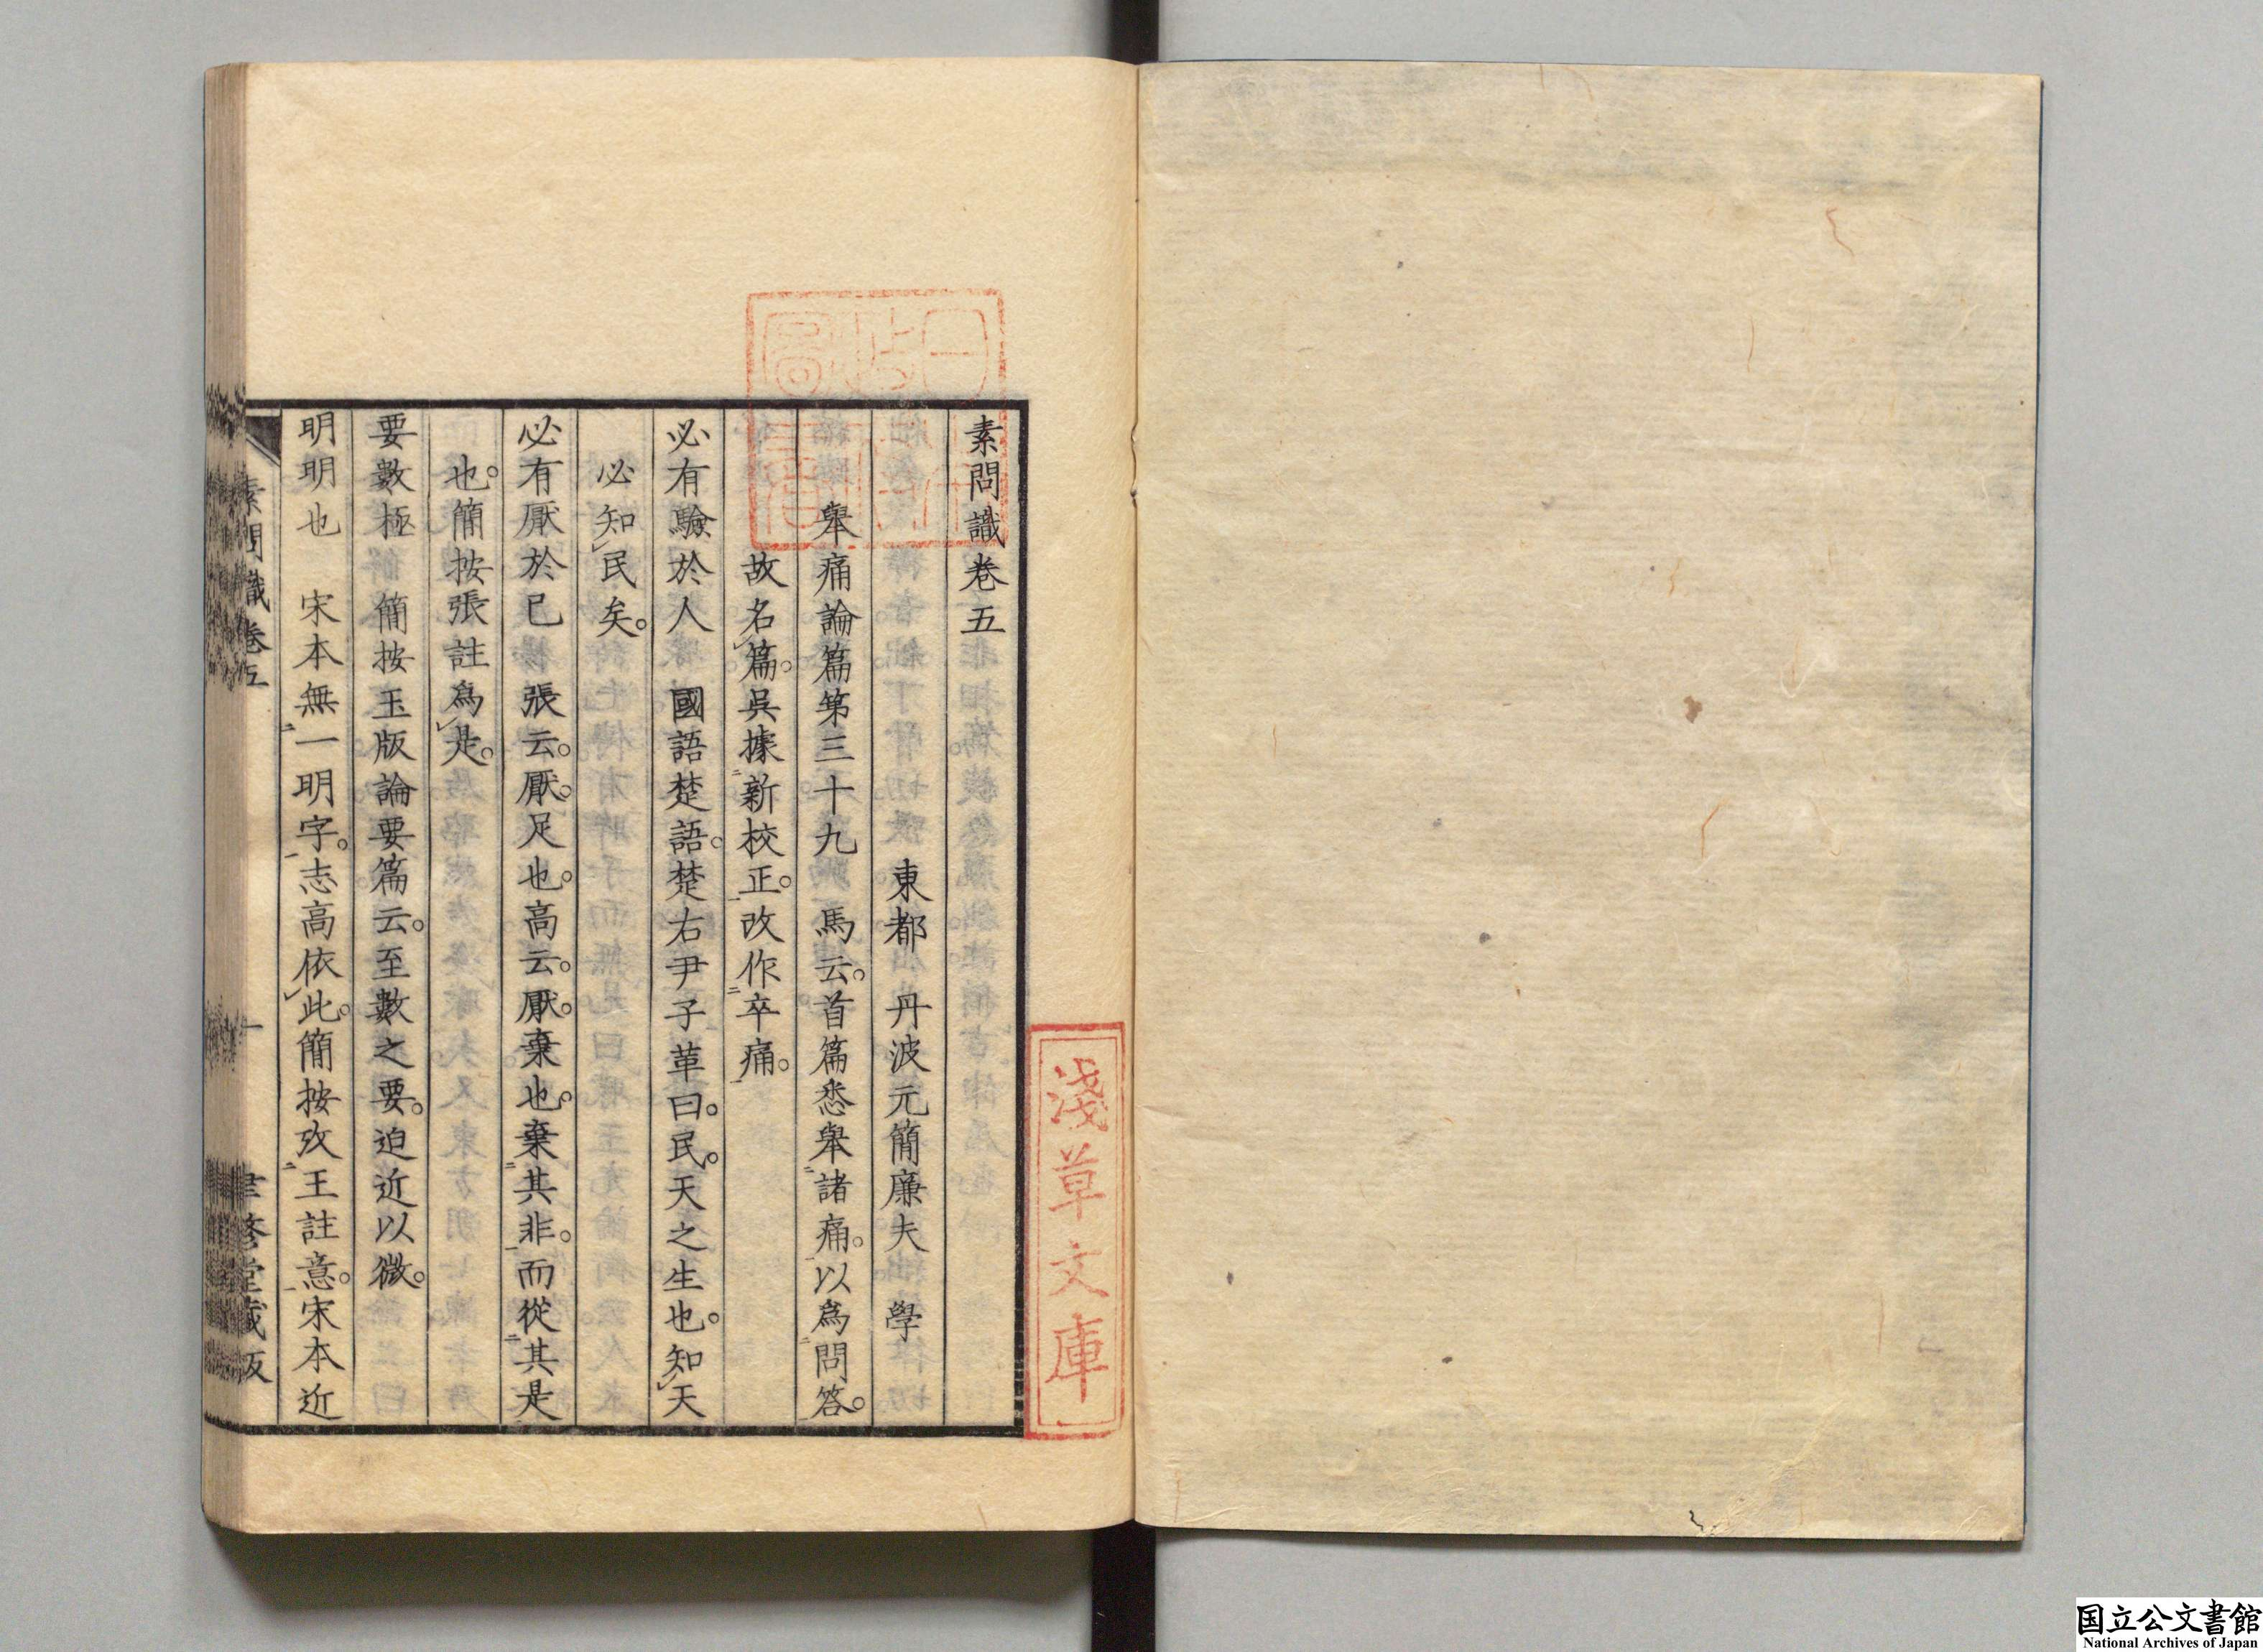 素問識卷五
東都 丹波元簡廉夫 學
舉痛論篇第三十九 馬云。首篇悉舉諸痛。以爲問答。
故名篇。吳據新校正。改作卒痛。
必有驗於人 國語楚語。楚右尹子革曰。民。天之生也。知天
必知民矣。
必有厭於已 張云。厭。足也。高云。厭。棄也。棄其非。而從其是
也。簡按張註爲是。
要數極 簡按玉版論要篇云。至數之要。迫近以微。
明明也 宋本無一明字。志高依此。簡按攷王註意。宋本近
素問識卷五
一
聿修堂藏版
淺草文庫
国立公文書館
National Archives of Japan